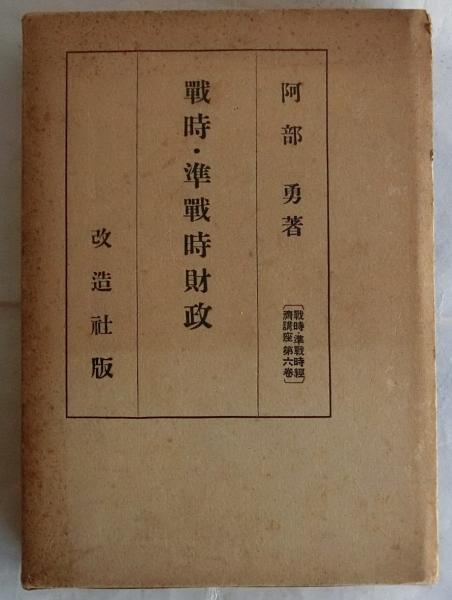 阿部勇著
〔戰時・準戰時經
濟講座第六卷〕
戰時・準戰時財政
改造社版